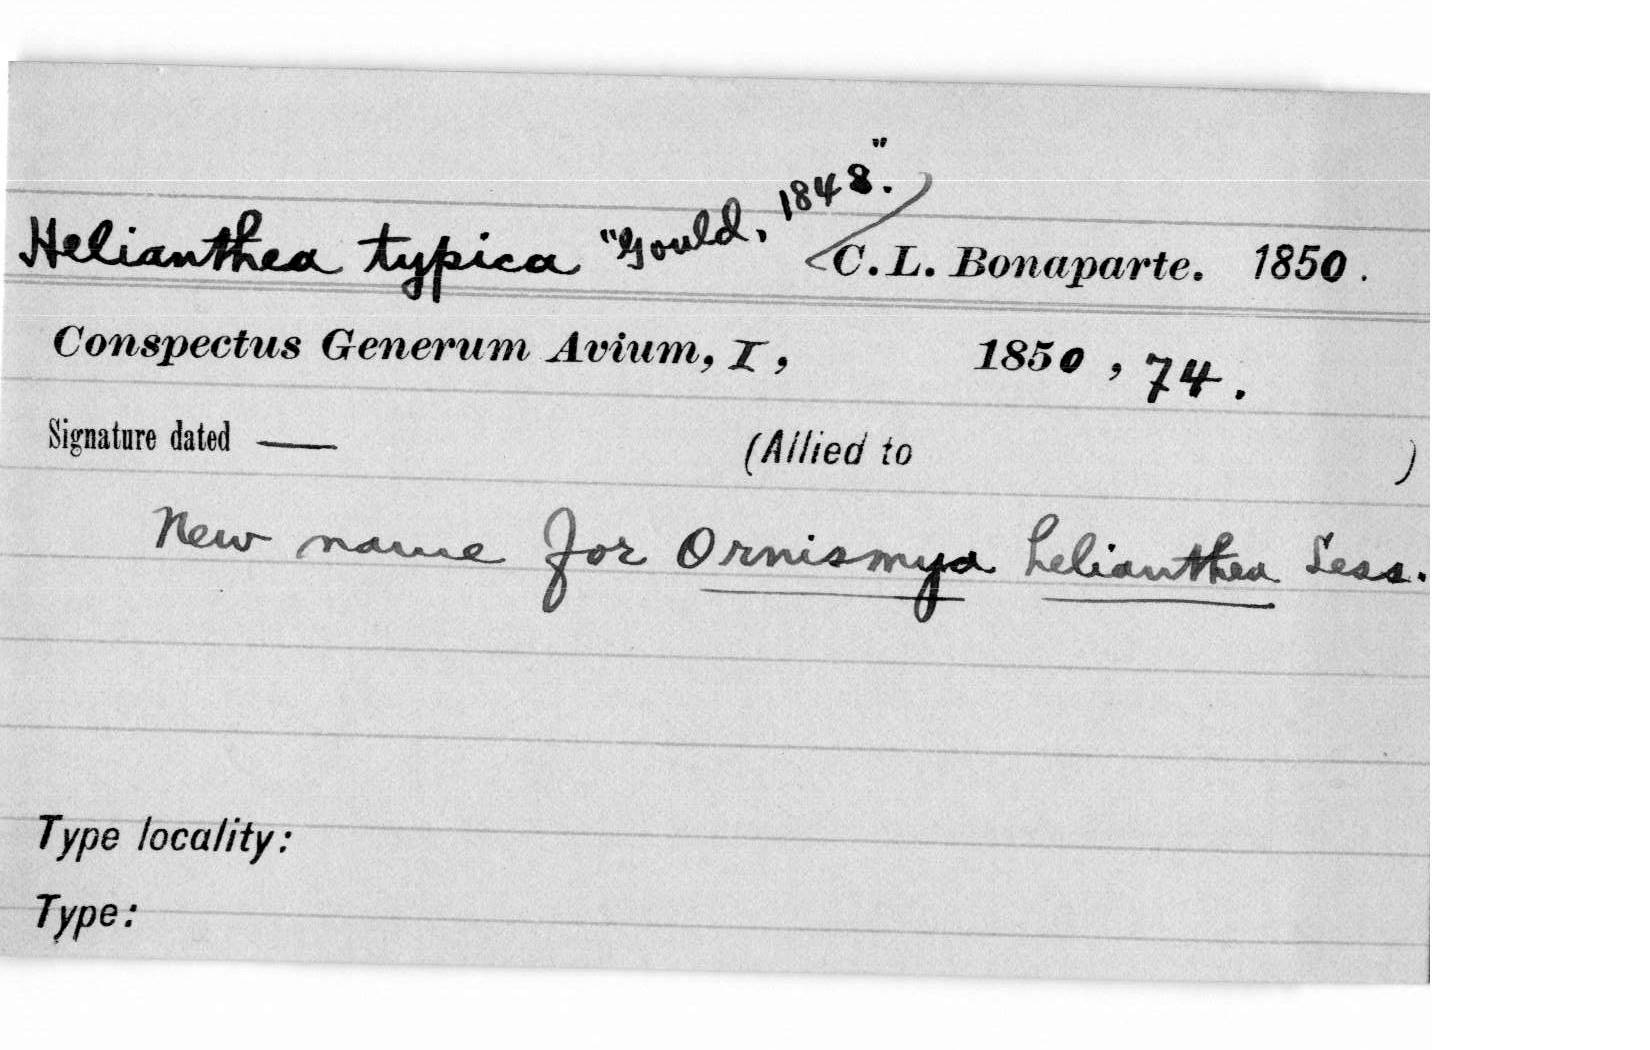 Helianthea typica "Gould, 1848." C. L. Bonaparte. 1850.
Conspectus Generum Avium, I, 1850, 74.
Signature dated — (Allied to )
New name for Ornismya helianthea Less.
Type locality:
Type: